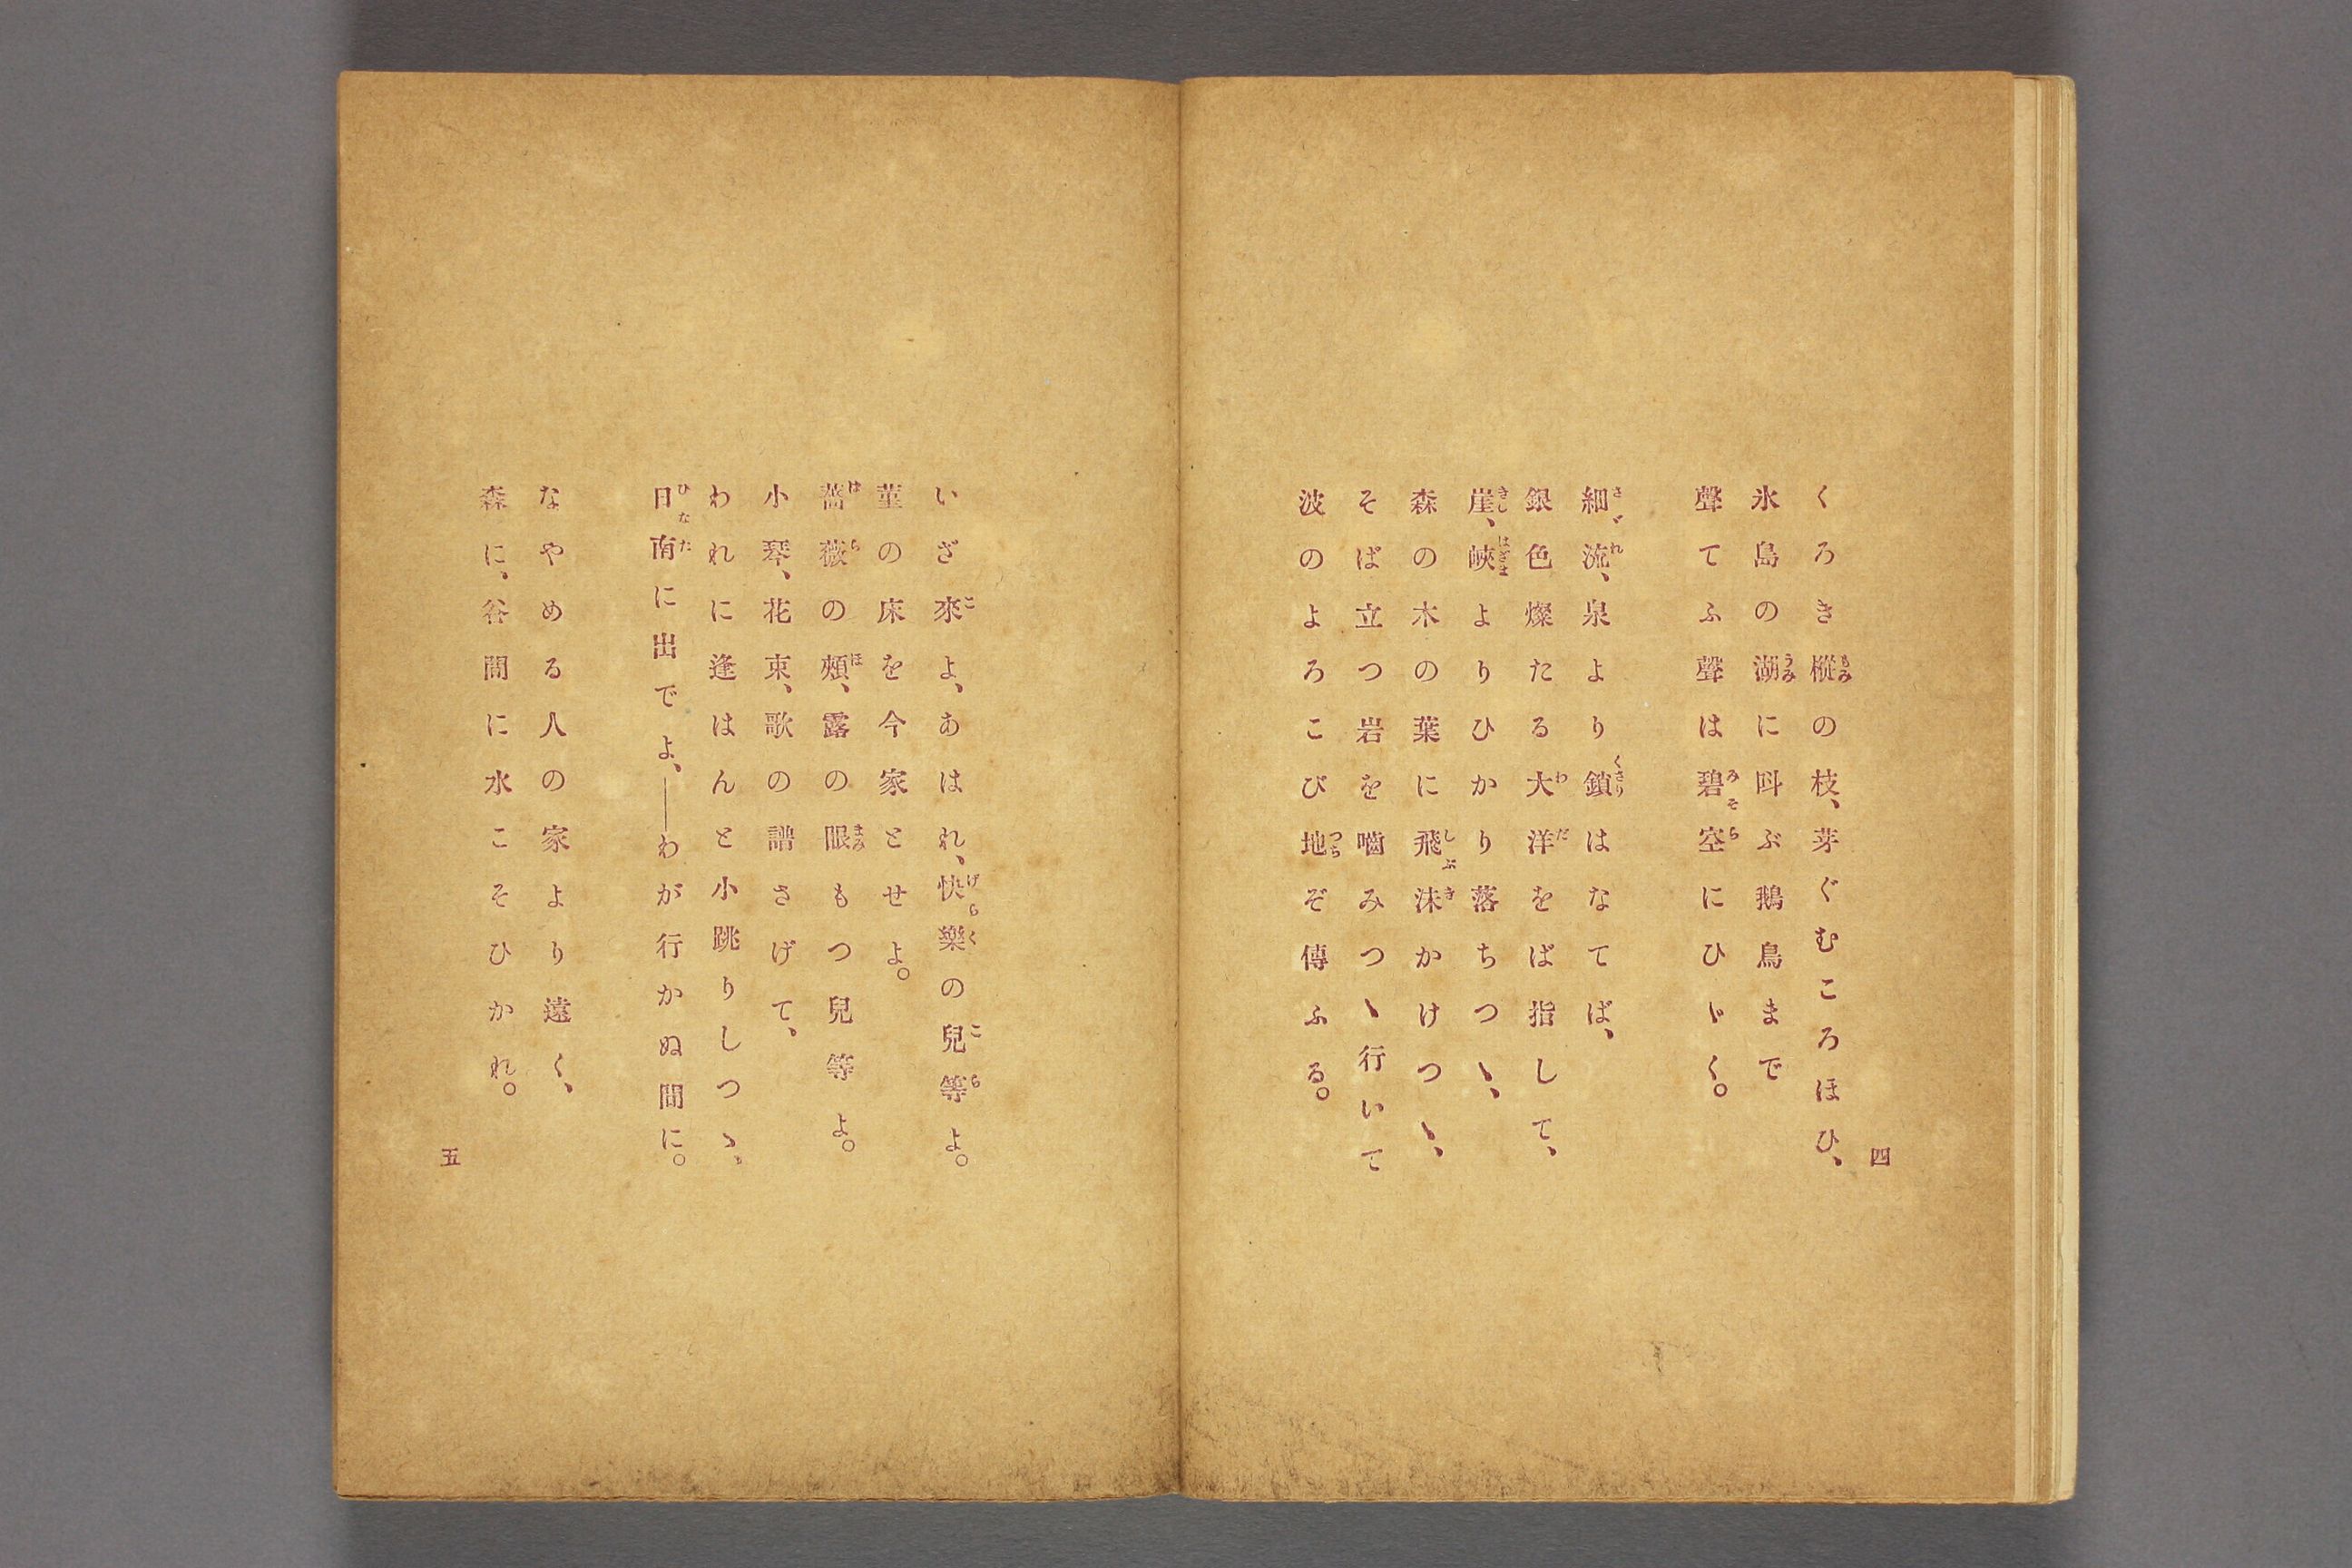 四
くろき樅の枝、芽ぐむころほひ、
氷島の湖に呌ぶ鵝鳥まで
聲てふ聲は碧空にひゞく。
細流、泉より鎖はなてば、
銀色燦たる大洋をば指して、
崖、峽よりひかり落ちつゝ、
森の木の葉に飛沫かけつゝ、
そば立つ岩を嚙みつゝ行いて
波のよろこび地ぞ傳ふる。
いざ來よ、あはれ、快樂の兒等よ。
菫の床を今家とせよ。
薔薇の頰、露の眼もつ兒等よ。
小琴、花束、歌の譜さげて、
われに逢はんと小跳りしつゝ、
日南に出でよ、──わが行かぬ間に。
なやめる人の家より遠く、
森に、谷間に水こそひかれ。
五